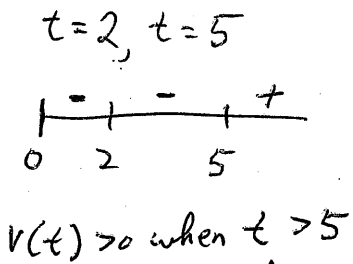 t=2, t=5
- - +
0 2 5
v(t) >0 when t >5